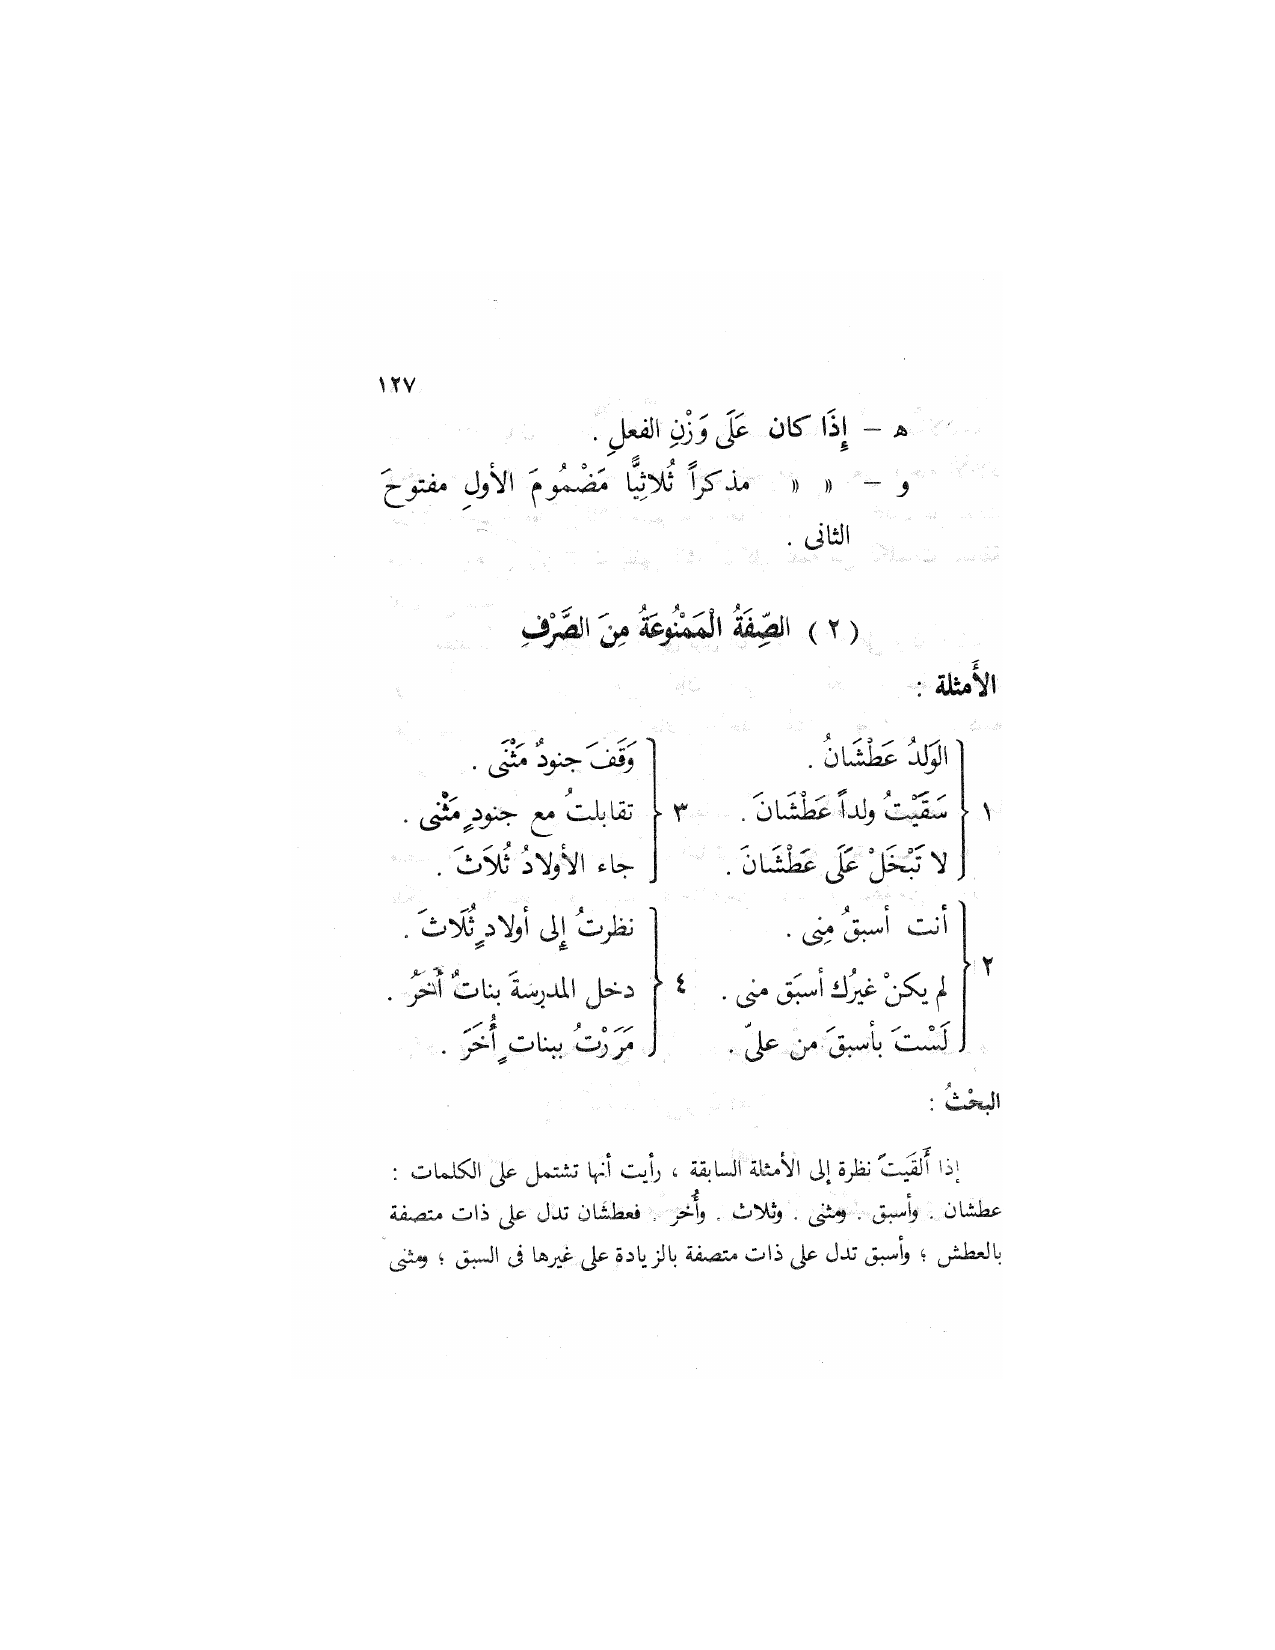 ١٢٧
ﻫ – إِذَا كان عَلَى وَزْنِ الفعلِ .
و – « « مذكراً ثُلاثِيًّا مَضْمُومَ الأولِ مفتوحَ
الثانى .
( ٢ ) الصِّفَةُ الْمَمْنُوعَةُ مِنَ الصَّرْفِ
الأَمثلة :
١
الوَلدُ عَطْشَانُ .
سَقَيْتُ ولداً عَطْشَانَ .
لا تَبْخَلْ عَلَى عَطْشَانَ .
٢
أنت أسبقُ مِنى .
لم يكنْ غيرُك أسبَق منى .
لَسْتَ بأسبقَ من علىّ .
٣
وَقَفَ جنودٌ مَثْنَى .
تقابلتُ مع جنودٍ مَثْنى .
جاء الأولادُ ثُلاَثَ .
٤
نظرتُ إِلى أولادٍ ثُلَاثَ .
دخل المدرسةَ بناتٌ أُخَرُ .
مَرَرْتُ ببناتٍ أُخَرَ .
البحْثُ :
إذا أَلقَيتَ نظرة إلى الأمثلة السابقة ، رأيت أنها تشتمل على الكلمات :
عطشان . وأسبق . ومثنى . وثلاث . وأُخر . فعطشان تدل على ذات متصفة
بالعطش ؛ وأسبق تدل على ذات متصفة بالزيادة على غيرها فى السبق ؛ ومثنى